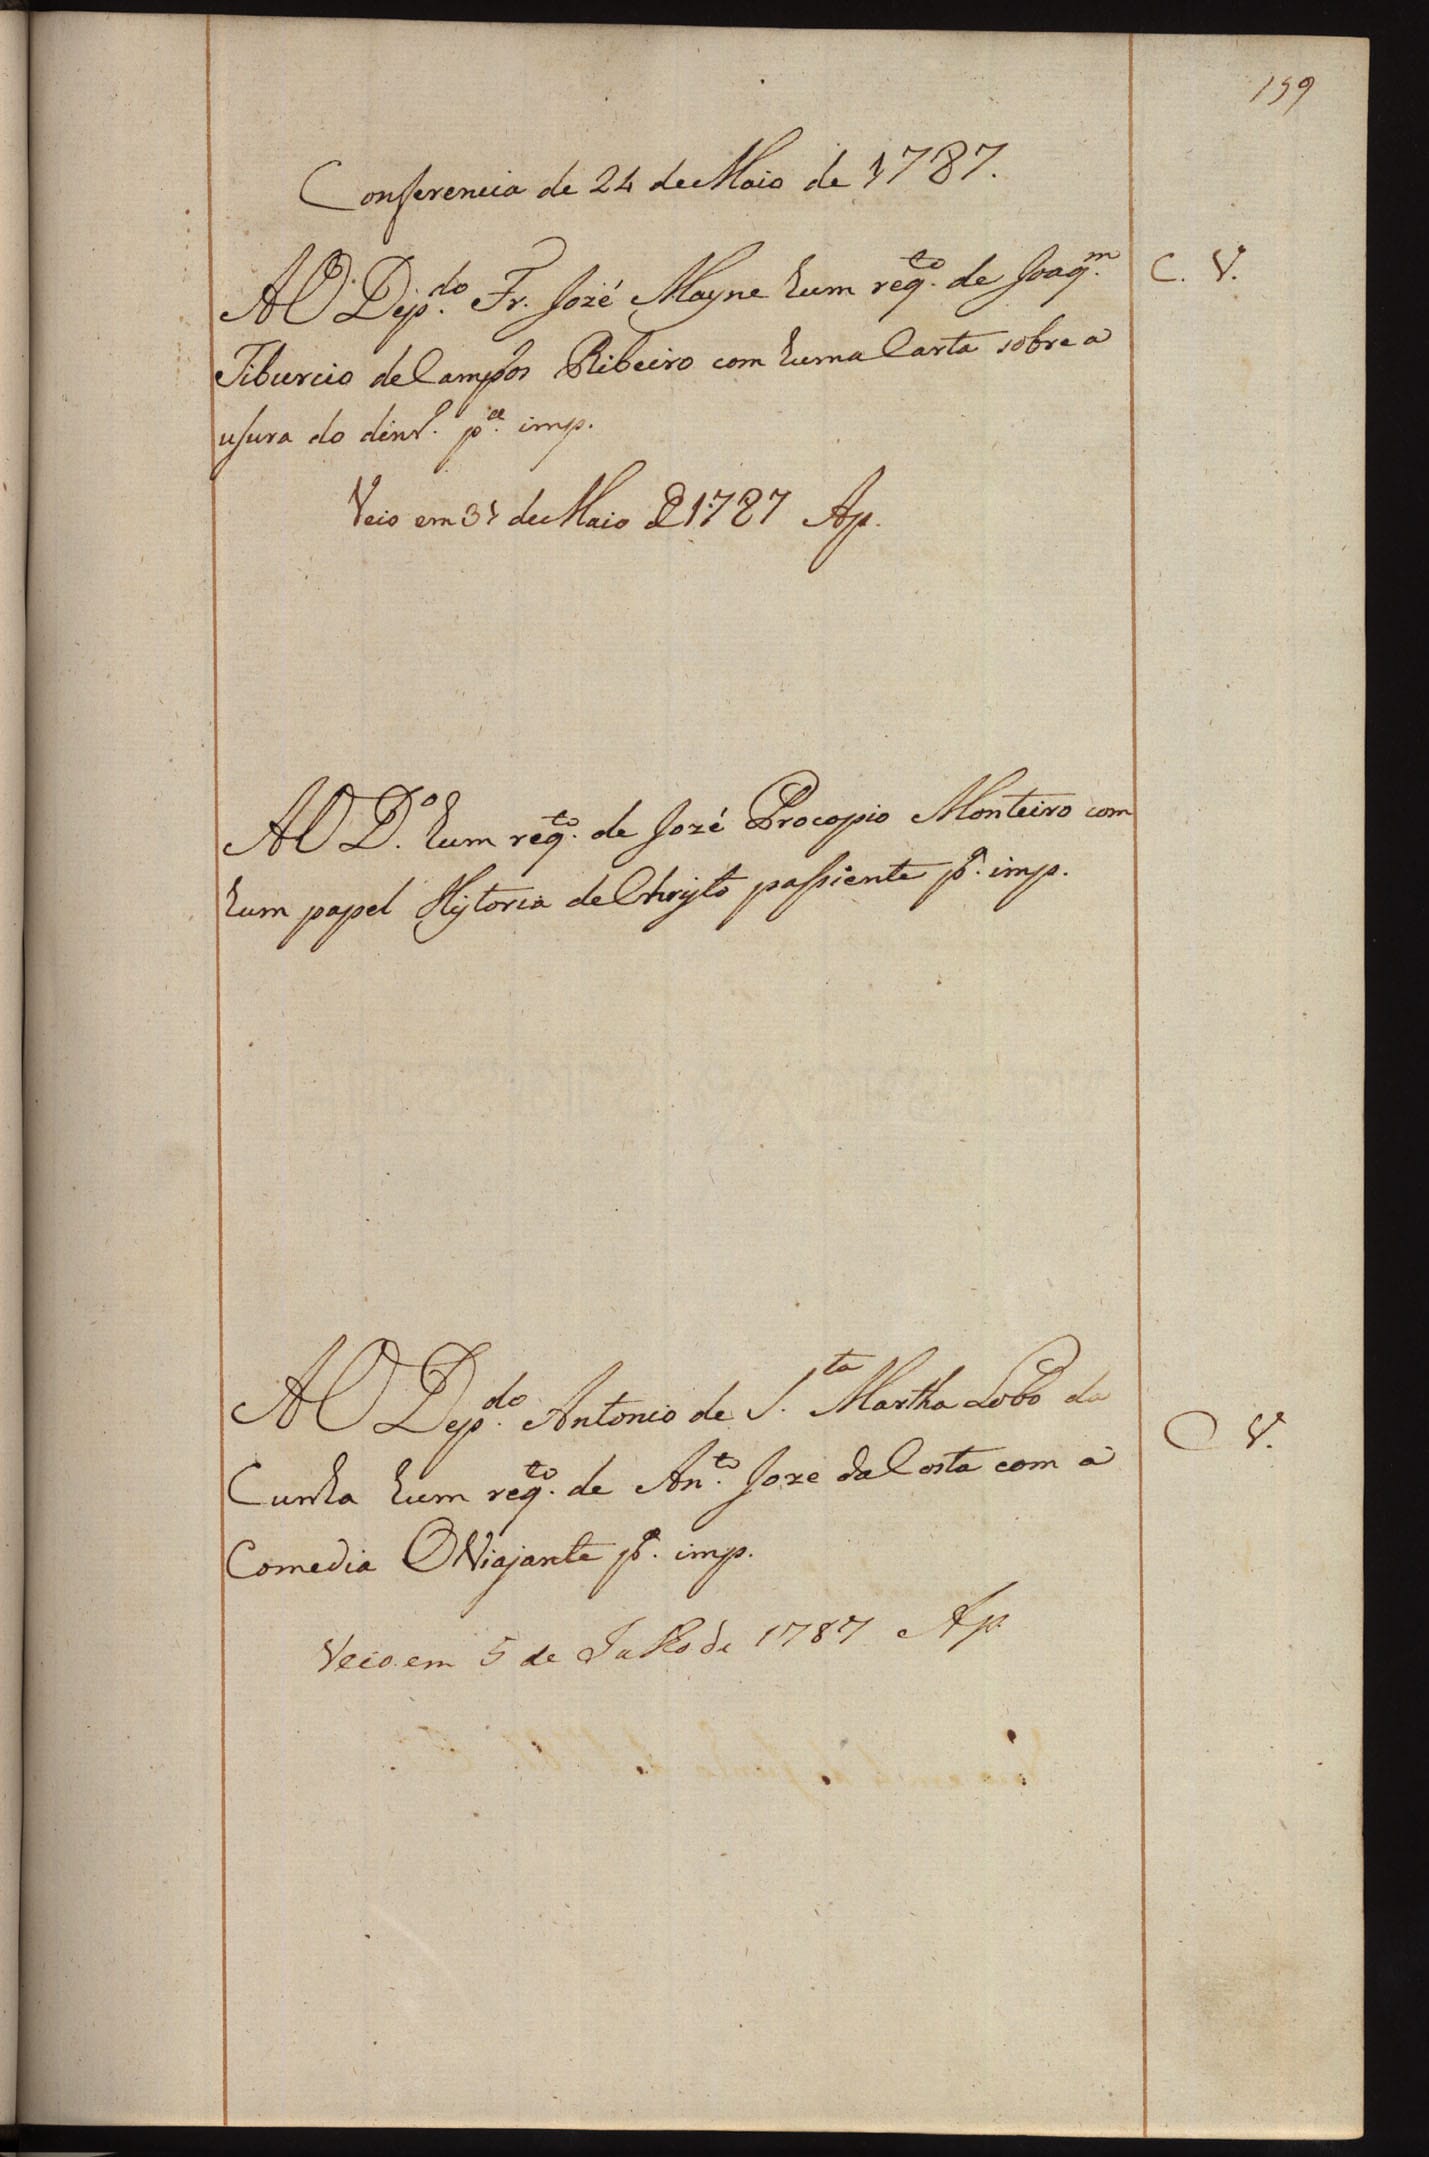 159
Conferencia de 24 de Maio de 1787.
AO Dep.do Fr. Jozé Mayne hum req.to de Joaq.m C. V.
Tiburcio de Campos Ribeiro com huma Carta sobre a
usura do dinh.o p.a imp.
Veio em 31 de Maio de 1787 Ap.
AO D.o hum req.to de Jozé Procopio Monteiro com
hum papel Hystoria de Chrysto passiente p.a imp.
AO Dep.do Antonio de S.ta Martha Lobo da
Cunha hum req.to de An.to Joze da Costa com a C V.
Comedia O Viajante p.a imp.
Veio em 5 de Julho de 1787 Ap.